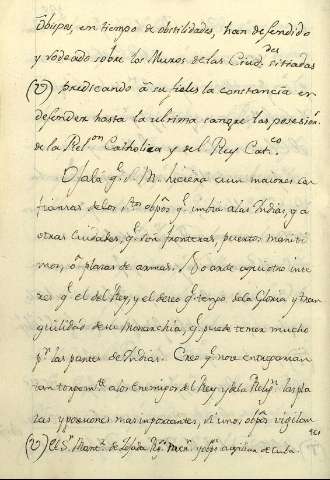 Obispos, en tiempo de obstilidades, han defendido
y rodeado sobre los Muros de las Ciud.des sittadas
(V) predicando â su fieles la constancia en
defender hasta la ultima sangre las posesion.
de la Relon Catholica y del Rey Catco.
Ojala q.e S. M. hiciera cun maiores con
fiansas de los s.tos obpôs q.e imbia a las Indias, y a
otras ciudades, q.e son fronteras, puertos mariti
mos, ô plasas de armas. No ande aqui otro inte
res q.e el del Rey, y el deseo q.e tengo de la Gloria y tran
quilidad de su Monarchia, q.e puede temer mucho
p.r las partes de Indias. Creo q.e no se entregarian
tan torpem.te a los Enemigos del Rey y de la Relig.n las pla
sas y posesiones mas importantes, si unos obp.s vigilan
tes
(V) El S.r de Texada obpo auxiliar de Cuba.